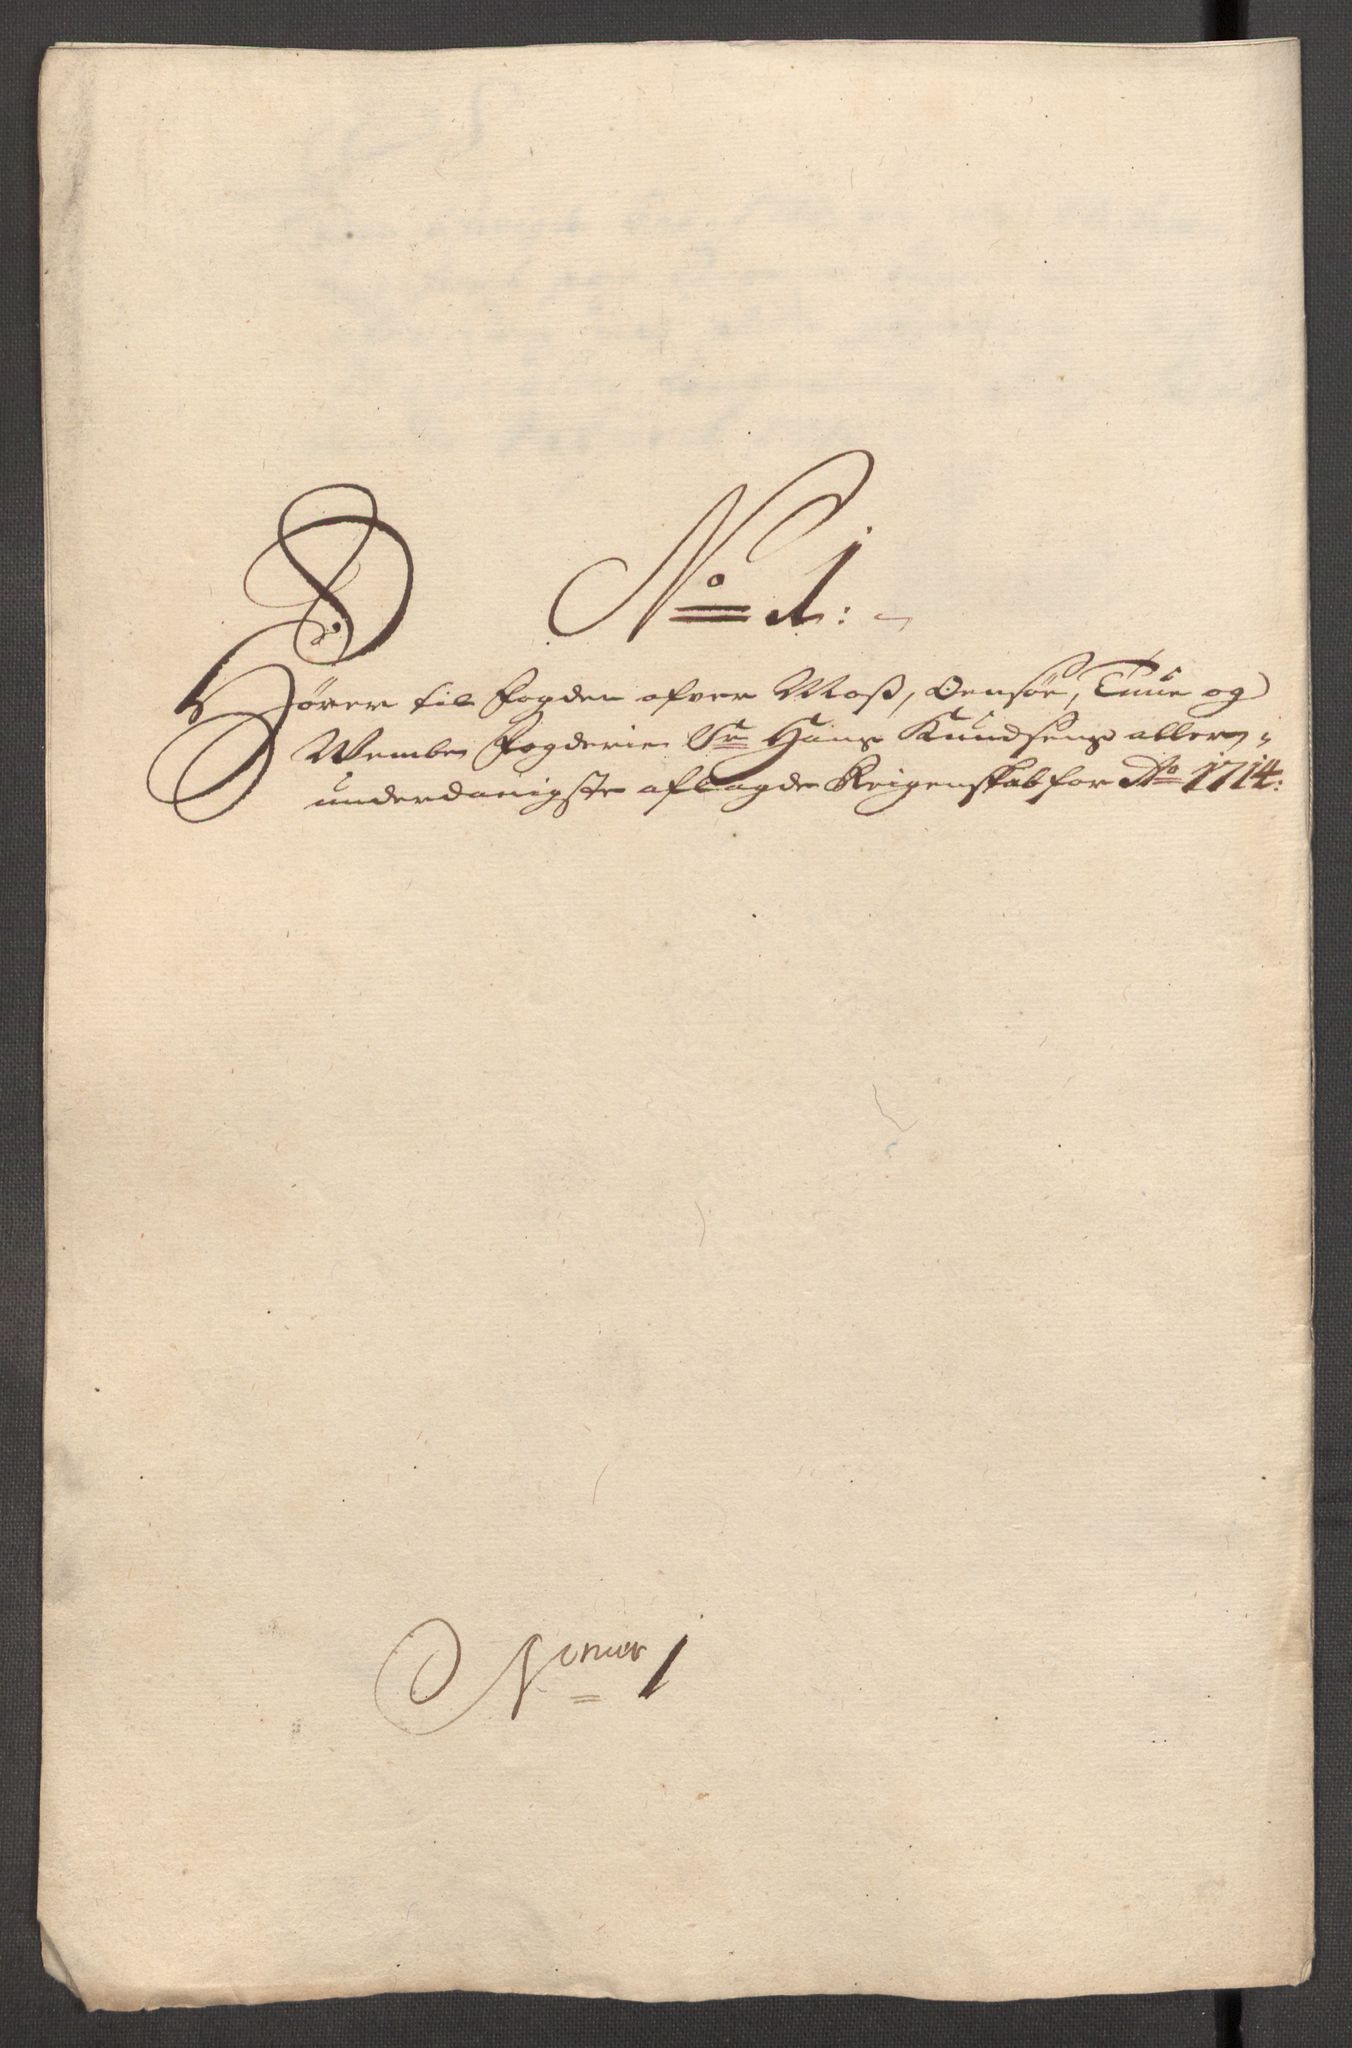 No 1:
Hører til Fogden ofver Moss, Oensøe, Tuue og
Wembe Fogderie Sr Hans Knudsens allerr-
underdanigste aflagde Reigenskab for Ao 1714:
Numer 1